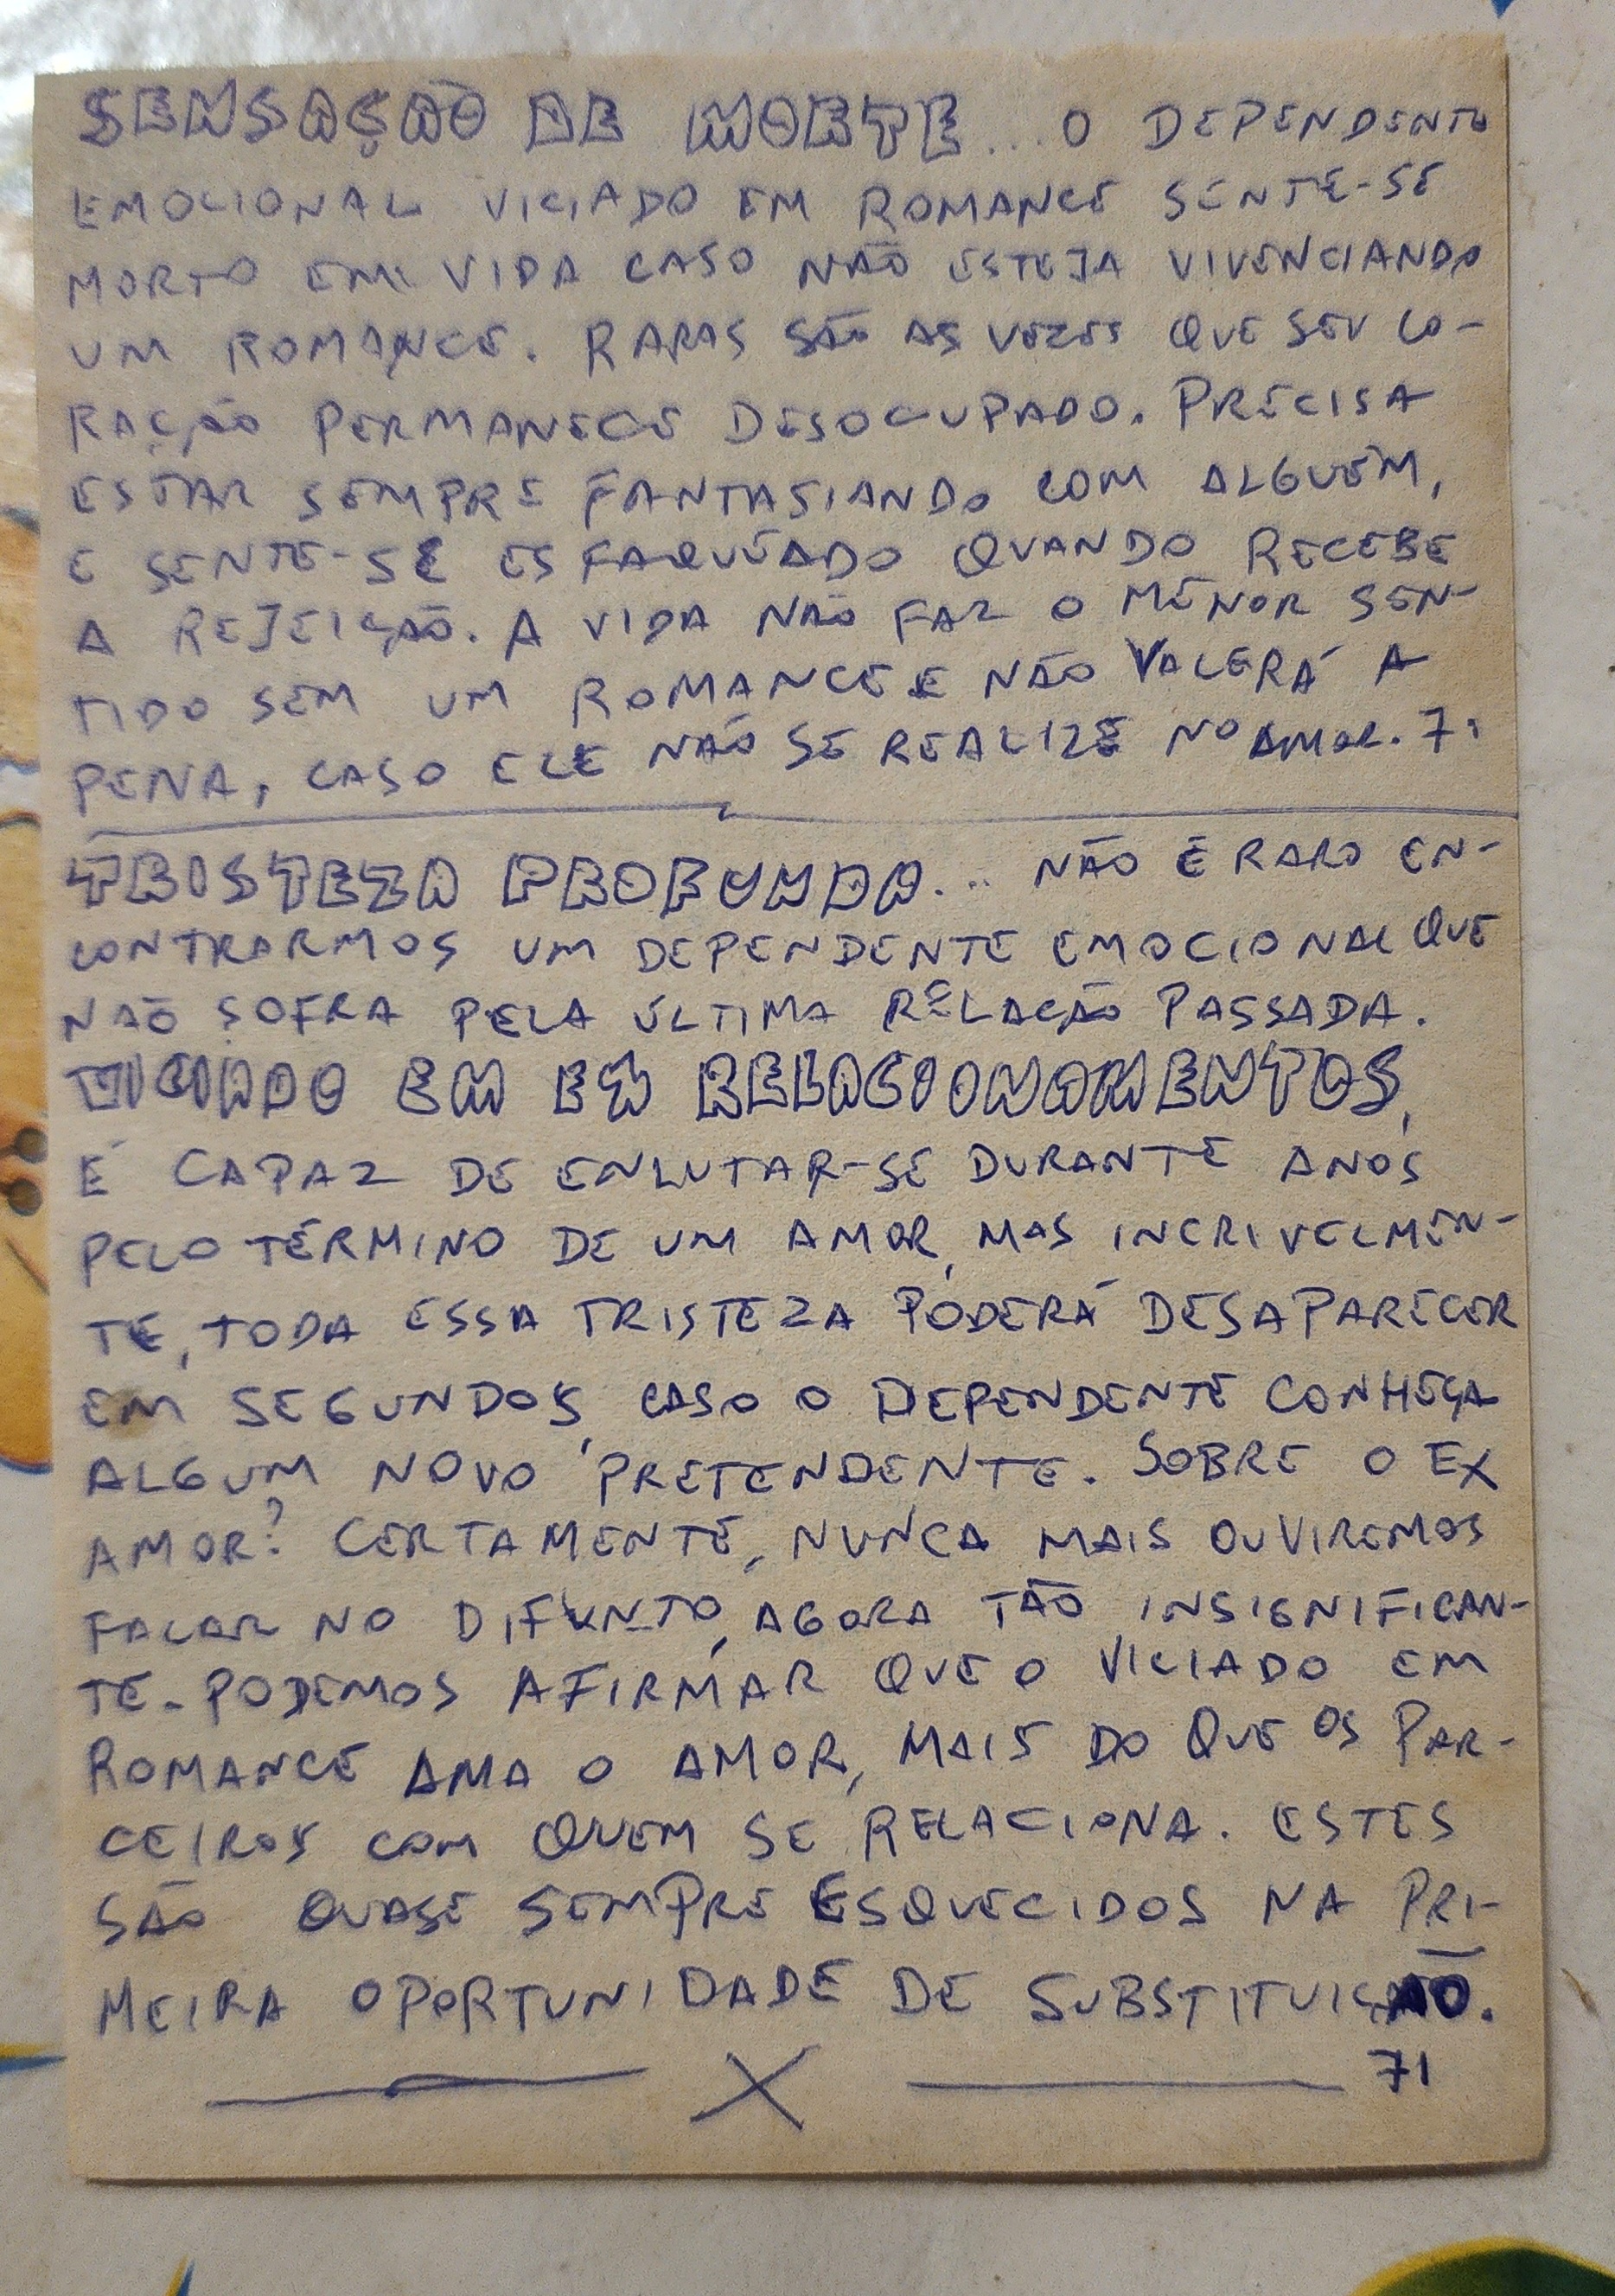 SENSAÇÃO DE MORTE... O DEPENDENTE
EMOCIONAL VICIADO EM ROMANCE SENTE-SE
MORTO EM VIDA CASO NÃO ESTEJA VIVENCIANDO
UM ROMANCE. RARAS SÃO AS VEZES QUE SEU CO-
RAÇÃO PERMANECE DESOCUPADO. PRECISA
ESTAR SEMPRE FANTASIANDO COM ALGUÉM,
E SENTE-SE ESFAQUEADO QUANDO RECEBE
A REJEIÇÃO. A VIDA NÃO FAZ O MENOR SEN-
TIDO SEM UM ROMANCE E NÃO VALERÁ A
PENA, CASO ELE NÃO SE REALIZE NO AMOR. 71
TRISTEZA PROFUNDA... NÃO É RARO EN-
CONTRARMOS UM DEPENDENTE EMOCIONAL QUE
NÃO SOFRA PELA ÚLTIMA RELAÇÃO PASSADA.
VICIADO EM EX RELACIONAMENTOS,
É CAPAZ DE ENLUTAR-SE DURANTE ANOS
PELO TÉRMINO DE UM AMOR, MAS INCRIVELMEN-
TE, TODA ESSA TRISTEZA PODERÁ DESAPARECER
EM SEGUNDOS, CASO O DEPENDENTE CONHEÇA
ALGUM NOVO PRETENDENTE. SOBRE O EX
AMOR? CERTAMENTE, NUNCA MAIS OUVIREMOS
FALAR NO DIFUNTO, AGORA TÃO INSIGNIFICAN-
TE. PODEMOS AFIRMAR QUE O VICIADO EM
ROMANCE AMA O AMOR, MAIS DO QUE OS PAR-
CEIROS COM QUEM SE RELACIONA. ESTES
SÃO QUASE SEMPRE ESQUECIDOS NA PRI-
MEIRA OPORTUNIDADE DE SUBSTITUIÇÃO.
X 71